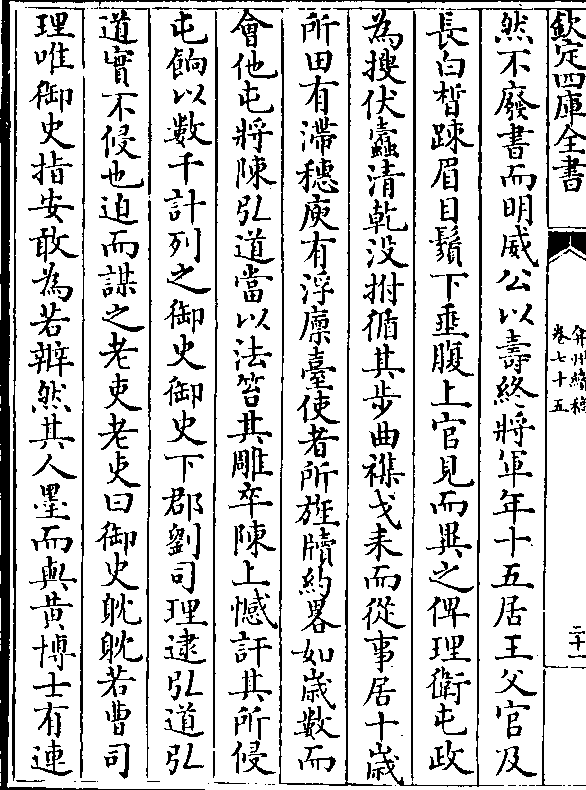 欽定四庫全書
弇州續稿
卷七十五
二十一
然不廢書而明威公以壽終將軍年十五居王父官及
長白皙踈眉目鬚下垂腹上官見而異之俾理衛屯政
為搜伏蠧清乾没拊循其步曲襍戈耒而從事居十歲
所田有滯穗庾有浮廪臺使者所旌牘約畧如歲數而
會他屯將陳弘道當以法笞其雕卒陳上憾訐其所侵
屯餉以數千計列之御史御史下郡劉司理逮弘道弘
道實不侵也迫而謀之老吏老吏曰御史眈眈若曹司
理唯御史指安敢為若辧然其人墨而與黄博士有連